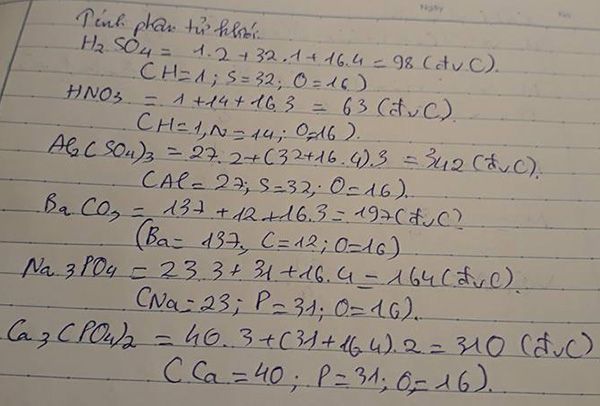 Tính phân tử khối.
H₂SO₄ = 1.2+32.1+16.4=98 (đvC).
(H=1; S=32; O=16)
HNO₃ = 1+14+16.3 = 63 (đvC).
(H=1, N=14; O=16).
Al₂(SO₄)₃ = 27.2+(32+16.4).3 = 342 (đvC).
(Al=27; S=32; O=16).
BaCO₃ = 137+12+16.3=197(đvC)
(Ba=137, C=12; O=16)
Na₃PO₄ = 23.3+31+16.4=164(đvC).
(Na=23; P=31; O=16).
Ca₃(PO₄)₂ = 40.3+(31+16.4).2=310 (đvC)
(Ca=40; P=31; O=16).